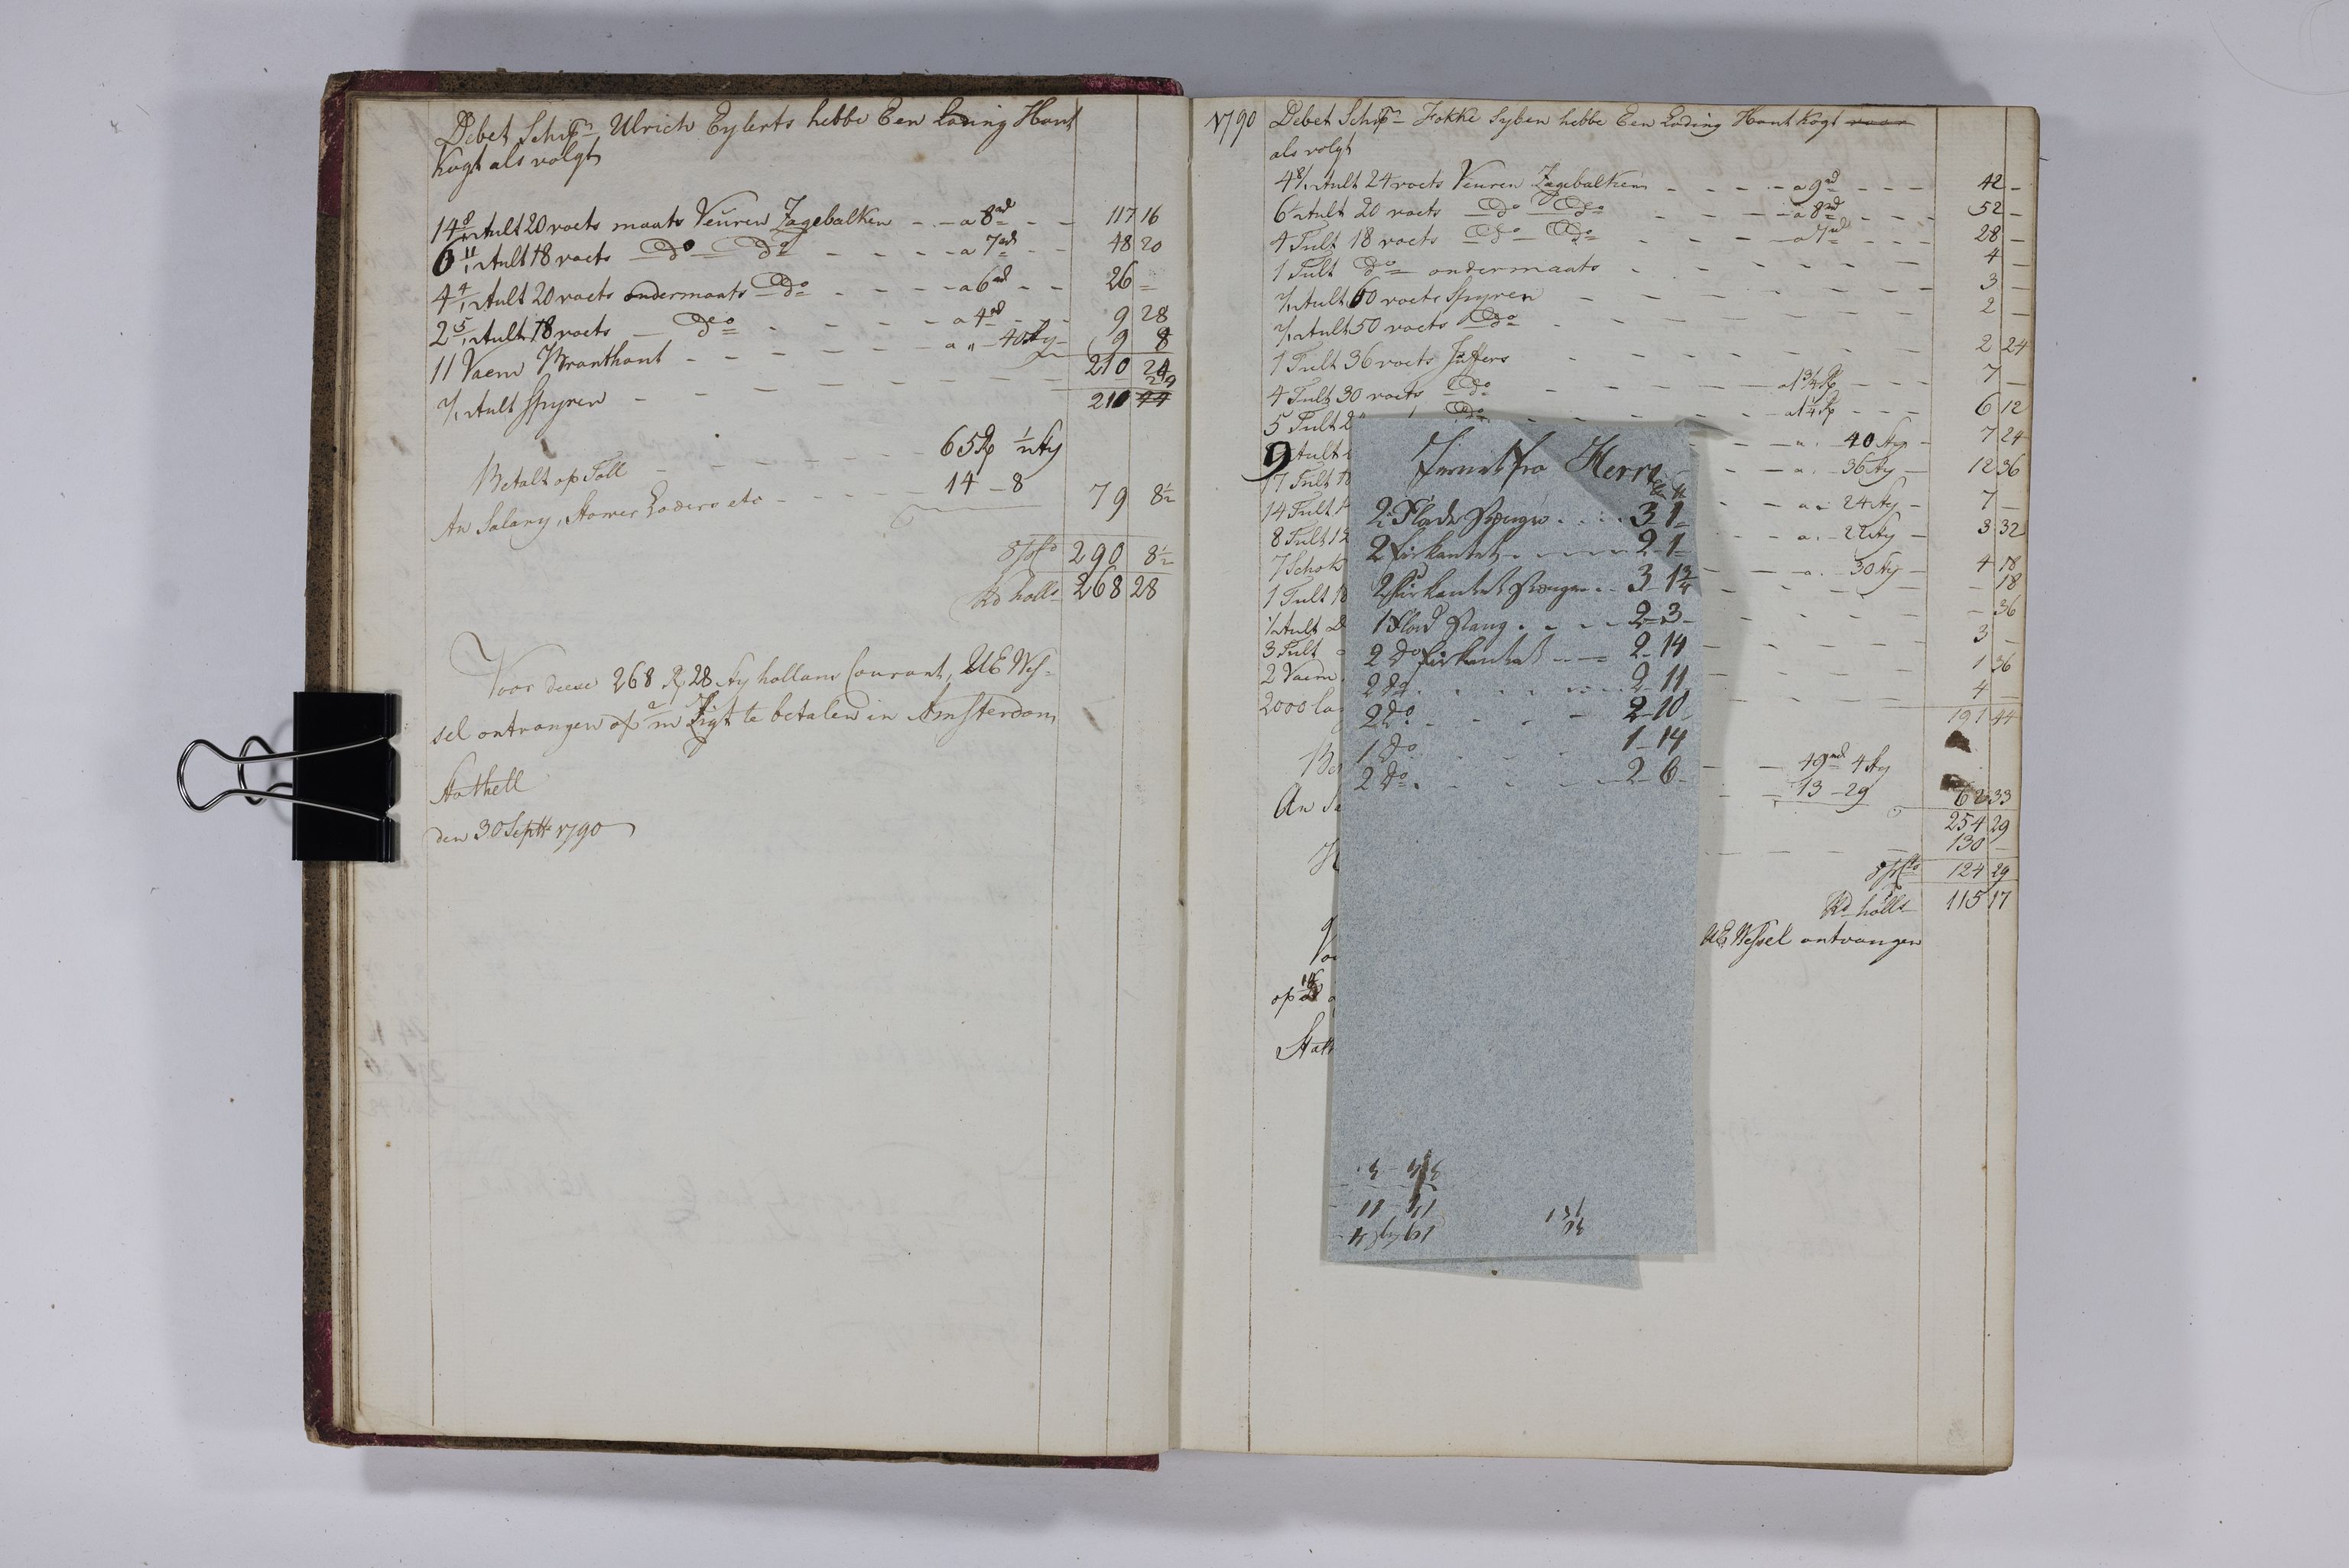 Debet Schipr Ulrich Eylerts hebbe Een Loding Hout
Kogt als volgt
14 8/12 Tult 20 voets maats Veuren Zagebalken - - a 8 rd - - 117 16
6 11/12 Tult 18 voets Do Do - - - a 7 rd - - 48 20
4 4/12 Tult 20 voets ondermaats Do - - - a 6 rd - - 26 -
2 5/12 Tult 18 voets - Do - - - a 4 rd - - 9 28
11 Vaem Branthout - - - a " - 40 sty - 9 8
210 24
1/2 Tult Spyren - - - 29
210 44
Betalt op Toll - - - 65 R 1/2 sty
An Salary, Stower Loders etc - - - 14 - 8 79 8 1/2
Spts 290 8 1/2
Rd holls 268 28
Voor deese 268 R 28 sty hollans Courant, UE Wes-
sel ontvangen op 2/m Zigt te betalen in Amsterdam
Stathell
den 30 Septt 1790
1790 Debet Schipr Fokke Syben hebbe Een Loding Hout Kogt voor
als volgt
4 8/12 Tult 24 voets Veuren Zagebalken - - - a 9 rd - - - 42 -
6 1/2 Tult 20 voets Do Do - - - a 8 rd - - - 52 -
4 Tult 18 voets Do - Do - - - a 7 rd - - - 28 -
1 Tult Do ondermaats - - - 4 -
1/2 Tult 60 voets Spyren - - - 3 -
1/2 Tult 50 voets Do - - - 2 -
1 Tult 36 voets Juffers - - - 2 24
4 Tult 30 voets Do - - - a 1 3/4 R - - - 7 -
5 Tult 2 Do - - - a 1 1/4 R - - - 6 12
9 Tult - - a. 40 sty - 7 24
17 Tult - - a. 36 sty - 12 36
14 Tult - - a. 24 sty - 7 -
8 Tult 12 - - a. 22 sty - 3 32
7 Schok - - a. 30 sty - 4 18
1 Tult 18 - - - 18
1/2 Tult D - - - 36
3 Tult - - 3 -
2 Vaem - - 1 36
2000 - - 4 -
191 44
- - 49 rd 4 sty
An Sa - 13 - 29 62 33
254 29
- - - 130 -
Spts 124 29
Rd holls 115 17
UE Wessel ontvangen
op
Stat
fra Herre
2 Flade Stenger . . . . 3 1 -
2 firkantet - - - - 2 - 1 -
2 firkantet Stenger . . 3 - 1 3/4
1 Flad Stang . - - - 2 - 3 -
2 Do firkantet - - - 2 - 14
2 Do . - - - 2 - 11
2 Do . - - - 2 - 10 -
1 Do - - 1 - 14
2 Do . - - - 2 - 6 -